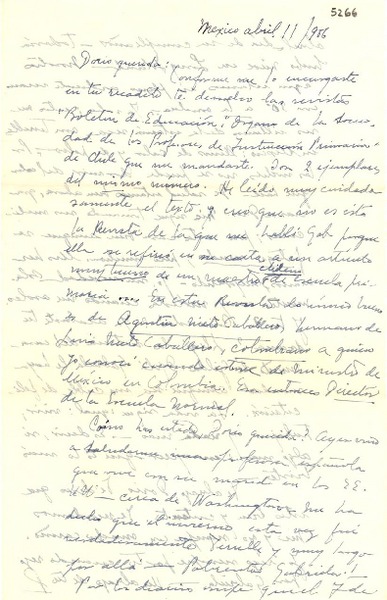 5266
Mexico abril 11/956
Doris querida: Conforme me lo encargaste
en tu recadito te devuelvo las revistas
"Boletin de Educación," Organo de la Socie-
dad de los Profesores de Instrucción Primaria
de Chile que me mandaste. Son 2 ejemplares
del mismo número. He leído muy cuidado
samente el texto, y creo que no es esta
la Revista de la que me habló Gab. porque
ella se refirió en su carta a un artículo
muy bueno de un maestro chileno de Escuela pri-
maria En esta Revista
de Agustín Nieto Caballero, hermano de
Luis Nieto Caballero, Colombiano a quien
yo conocí cuando estuve de Ministro de
México en Colombia. Era entonces Director
de la Escuela Normal.
Cómo has estado Doris querida? Ayer vino
a saludarme una profesora española
que vive con su marido en los EE.
UU — cerca de Washington y me ha
dicho que el invierno esta vez fué
verdaderamente terrible y muy largo
por allá. Pobrecita Gabriela!
Por los diarios supe que el 7 de